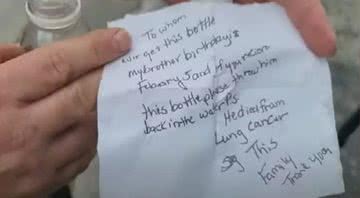 To whom
ever get this bottle
my brother birthday is
Febuary 5 and if you
this bottle please throw him
back in the water P.s.
He died from
Lung cancer
This
Family
Thank you